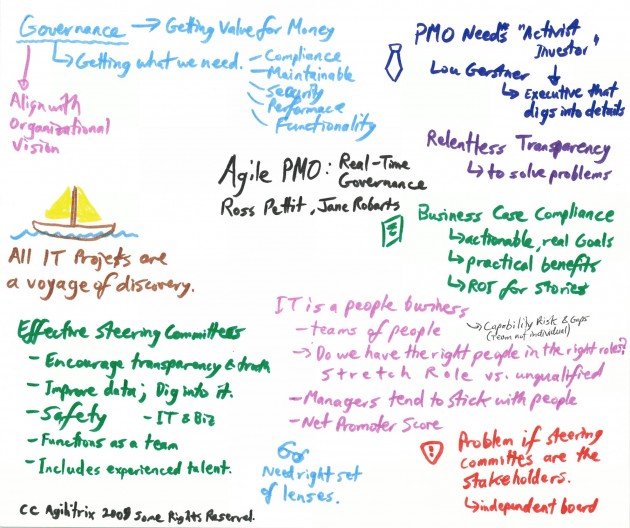 Governance → Getting Value for Money
↳ Getting what we need. - Compliance
- Maintainable
- Security
- Performace
- Functionality
Align with
Organizational
Vision
PMO Needs "Activist
Investor"
Lou Gerstner
↳ Executive that
digs into details
Relentless Transparency
↳ to solve problems
Agile PMO: Real-Time
Governance
Ross Pettit, Jane Robarts
Business Case Compliance
↳ actionable, real Goals
↳ practical benefits
↳ ROI for stories
All IT Projects are
a voyage of discovery.
IT is a people business
- teams of people
↳ Capability Risk & Gaps
(team not individual)
-> Do we have the right people in the right roles?
Stretch Role vs. unqualified
- Managers tend to stick with people
- Net Promoter Score
Effective Steering Committees
- Encourage transparency & truth
- Improve data; Dig into it.
- Safety - IT & Biz
- Functions as a team
- Includes experienced talent.
Need right set
of lenses.
Problem if steering
committes are the
stakeholders.
↳ independent board
CC Agilitrix 2009 Some Rights Reserved.